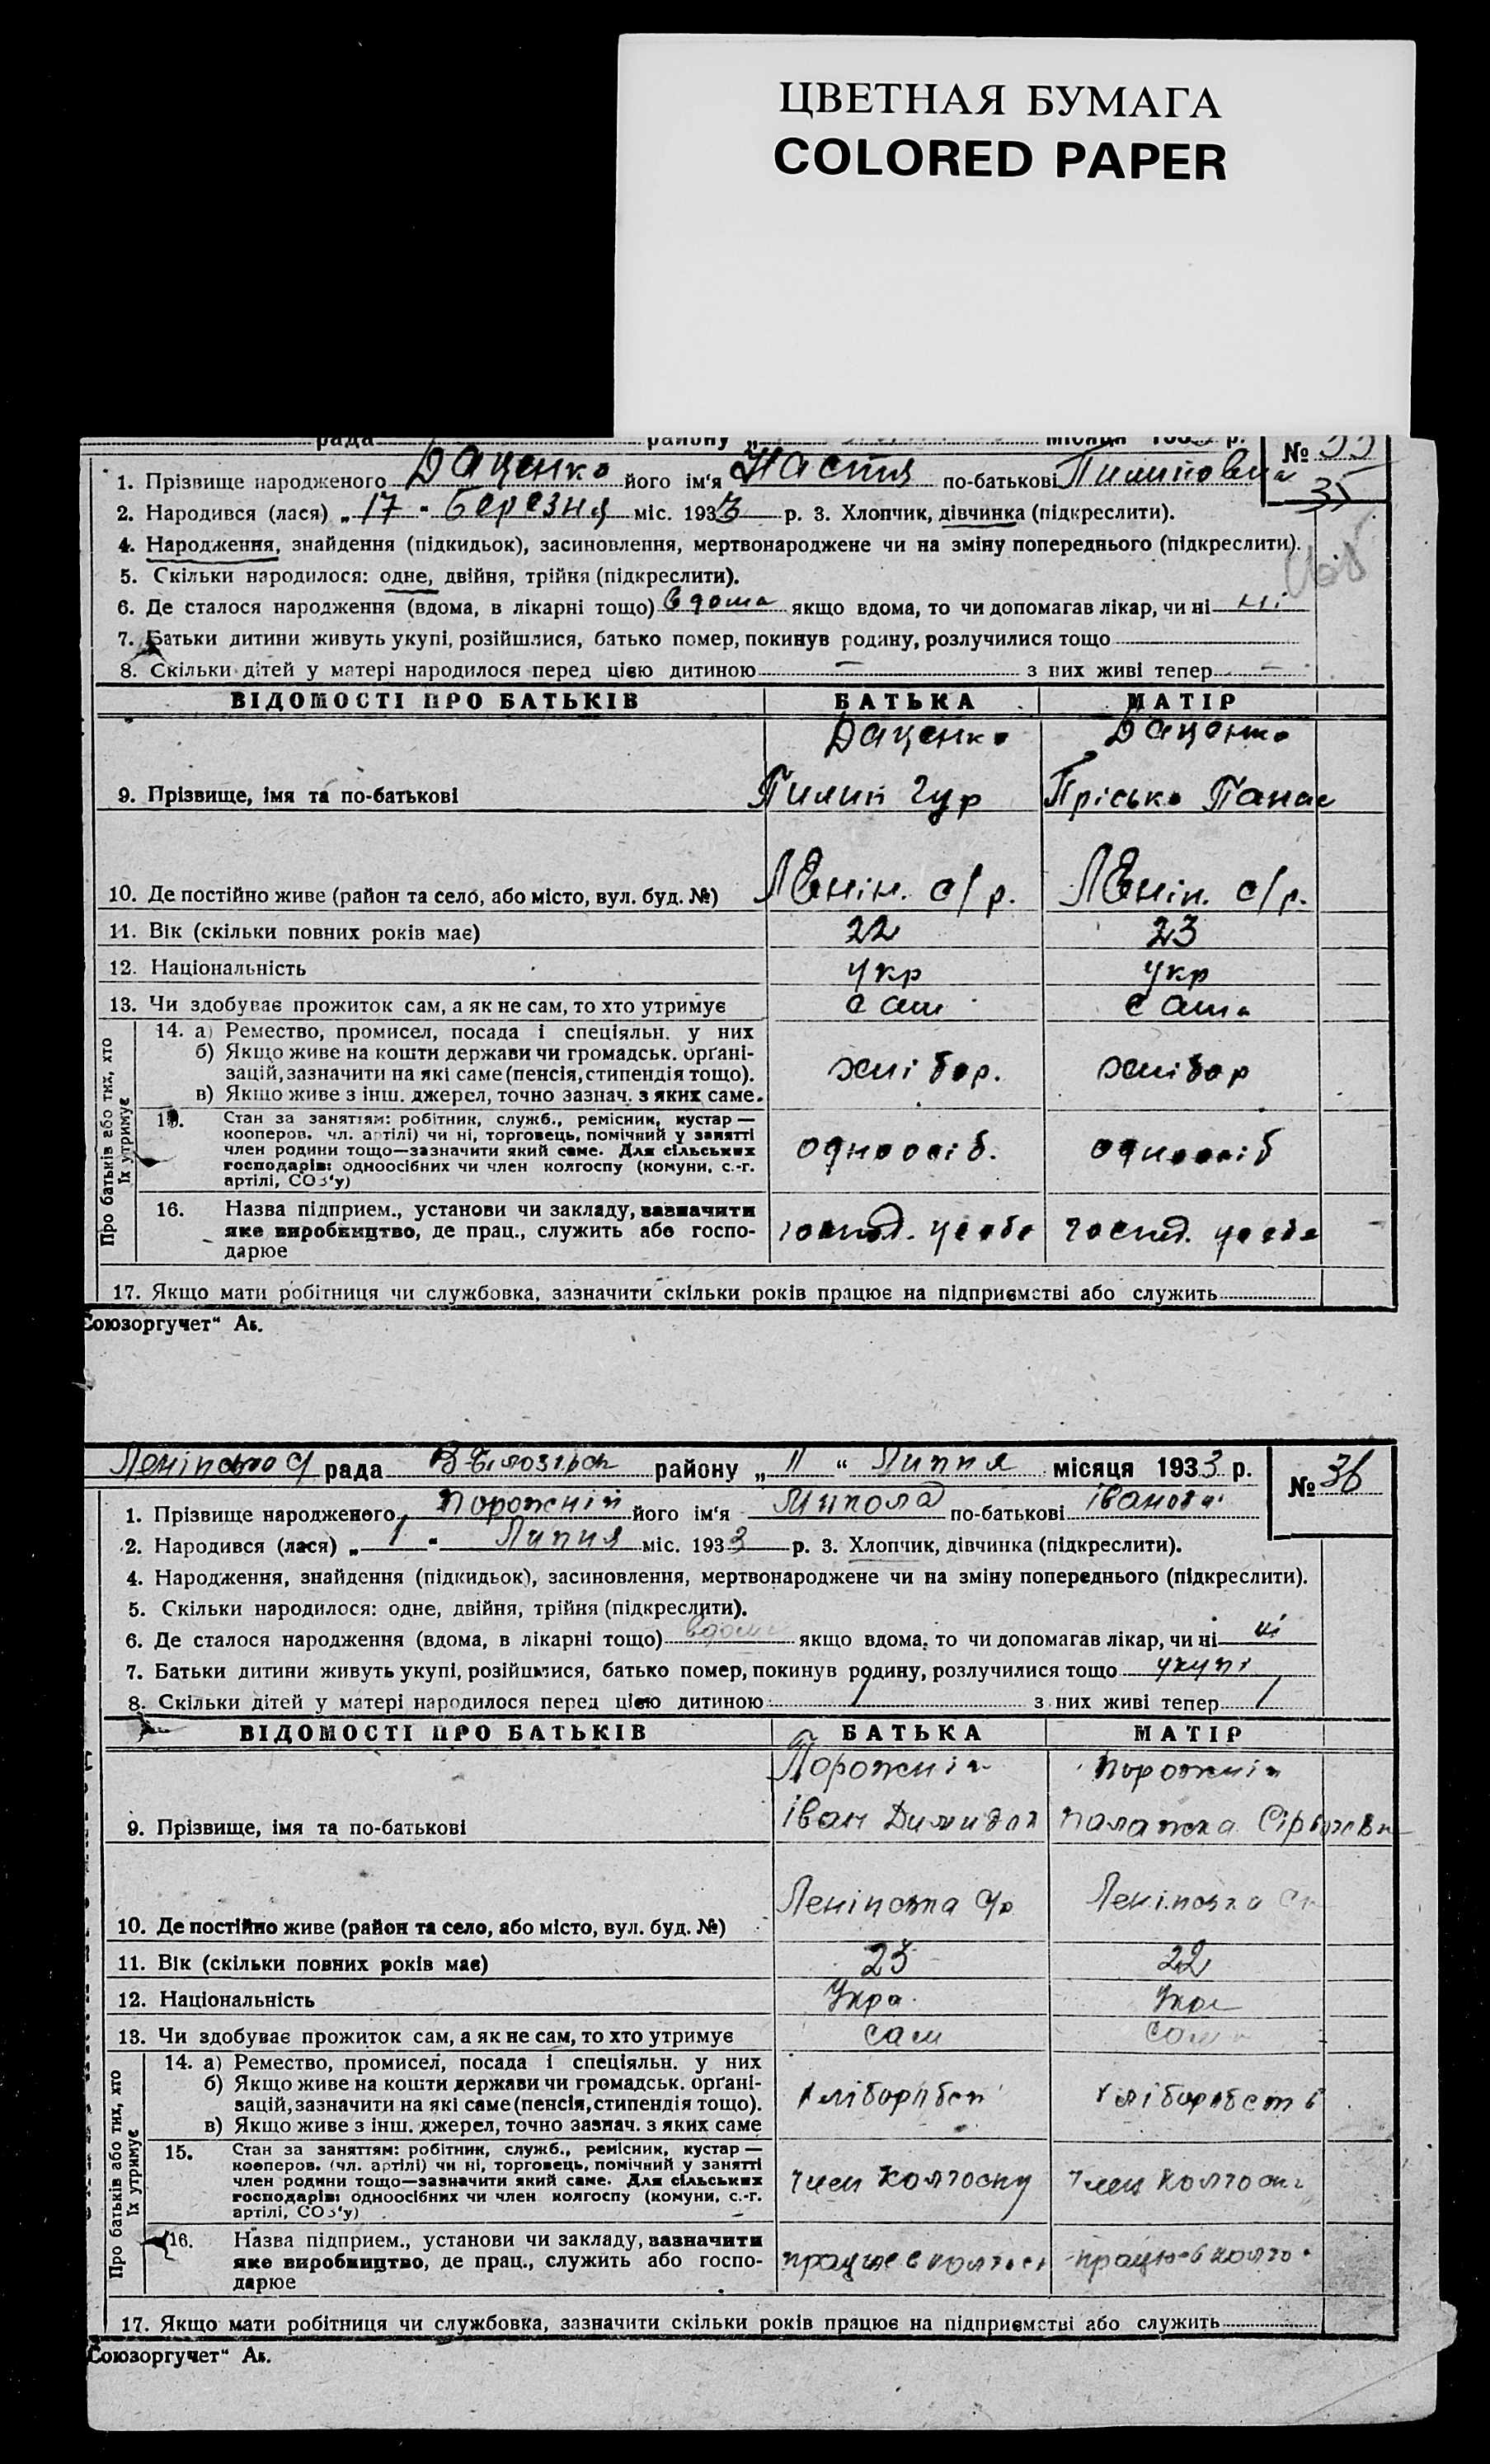 ЦВЕТНАЯ БУМАГА
COLORED PAPER
рада району „ місяця 193 р. № 35
1. Прізвище народженого Даценко його ім'я Настя по-батькові Пилиповна 35
2. Народився (лася) „ 17 " Березня міс. 1933 р. 3. Хлопчик, дівчинка (підкреслити).
4. Народження, знайдення (підкидьок), засиновлення, мертвонароджене чи на зміну попереднього (підкреслити).
5. Скільки народилося: одне, двійня, трійня (підкреслити).
6. Де сталося народження (вдома, в лікарні тощо) вдома якщо вдома, то чи допомагав лікар, чи ні ні
7. Батьки дитини живуть укупі, розійшлися, батько помер, покинув родину, розлучилися тощо
8. Скільки дітей у матері народилося перед цією дитиною — з них живі тепер —
ВІДОМОСТІ ПРО БАТЬКІВ БАТЬКА МАТІР
Даценко Даценко
9. Прізвище, імя та по-батькові Пилип Гур Пріська Панас
10. Де постійно живе (район та село, або місто, вул. буд. №) Ленін. с/р. Ленін. с/р.
11. Вік (скільки повних років має) 22 23
12. Національність укр укр
13. Чи здобуває прожиток сам, а як не сам, то хто утримує сам сама
Про батьків або тих, хто їх утримує
14. а) Ремество, промисел, посада і спеціяльн. у них
б) Якщо живе на кошти держави чи громадськ. орґані-
зацій, зазначити на які саме (пенсія, стипендія тощо). хлібор. хлібор
в) Якщо живе з інш. джерел, точно зазнач. з яких саме.
15. Стан за заняттям: робітник, служб., ремісник, кустар —
кооперов. чл. артілі) чи ні, торговець, помічний у занятті
член родини тощо—зазначити який саме. Для сільських одноосіб. одноосіб
господарів: одноосібних чи член колгоспу (комуни, с.-г.
артілі, СОЗ'у)
16. Назва підприєм., установи чи закладу, зазначити
яке виробництво, де прац., служить або госпо- господ. у себе господ. у себе
дарює
17. Якщо мати робітниця чи службовка, зазначити скільки років працює на підприємстві або служить
Союзоргучет" Ак.
Ленінська с/ рада В-Білозірськ району „ 11 " Липня місяця 1933 р. № 36
1. Прізвище народженого Порожній його ім'я Микола по-батькові Іванови
2. Народився (лася) „ 1 " Липня міс. 1933 р. 3. Хлопчик, дівчинка (підкреслити).
4. Народження, знайдення (підкидьок), засиновлення, мертвонароджене чи на зміну попереднього (підкреслити).
5. Скільки народилося: одне, двійня, трійня (підкреслити).
6. Де сталося народження (вдома, в лікарні тощо) вдома якщо вдома, то чи допомагав лікар, чи ні ні
7. Батьки дитини живуть укупі, розійшлися, батько помер, покинув родину, розлучилися тощо укупі
8. Скільки дітей у матері народилося перед цією дитиною 1 з них живі тепер 1
ВІДОМОСТІ ПРО БАТЬКІВ БАТЬКА МАТІР
Порожній Порожнія
9. Прізвище, імя та по-батькові Іван Димидов Палажка
10. Де постійно живе (район та село, або місто, вул. буд. №) Ленінська с/р Ленінська с/р
11. Вік (скільки повних років має) 23 22
12. Національність Укра Укра
13. Чи здобуває прожиток сам, а як не сам, то хто утримує сам сама
Про батьків або тих, хто їх утримує
14. а) Ремество, промисел, посада і спеціяльн. у них
б) Якщо живе на кошти держави чи громадськ. орґані-
зацій, зазначити на які саме (пенсія, стипендія тощо).
в) Якщо живе з інш. джерел, точно зазнач. з яких саме
15. Стан за заняттям: робітник, служб., ремісник, кустар —
кооперов. (чл. артілі) чи ні, торговець, помічний у занятті
член родини тощо—зазначити який саме. Для сільських член колгоспу член колгоспу
господарів: одноосібних чи член колгоспу (комуни, с.-г.
артілі, СОЗ'у)
16. Назва підприєм., установи чи закладу, зазначити
яке виробництво, де прац., служить або госпо- працює в колгосп працює в колго
дарює
17. Якщо мати робітниця чи службовка, зазначити скільки років працює на підприємстві або служить
Союзоргучет" Ак.